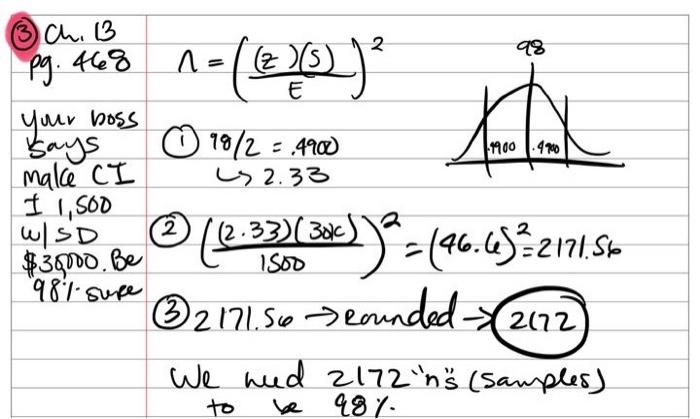 ③ Ch. 13
pg. 468
your boss
says
make CI
± 1,500
w/ SD
$30,000. Be
98% sure
n = ((z)(s) / E)²
98
.4900 .4900
① 98/2 = .4900
↳ 2.33
② ((2.33)(30k) / 1500)² = (46.6)² = 2171.56
③ 2171.56 → rounded → 2172
We need 2172 "n"s (samples)
to be 98%.